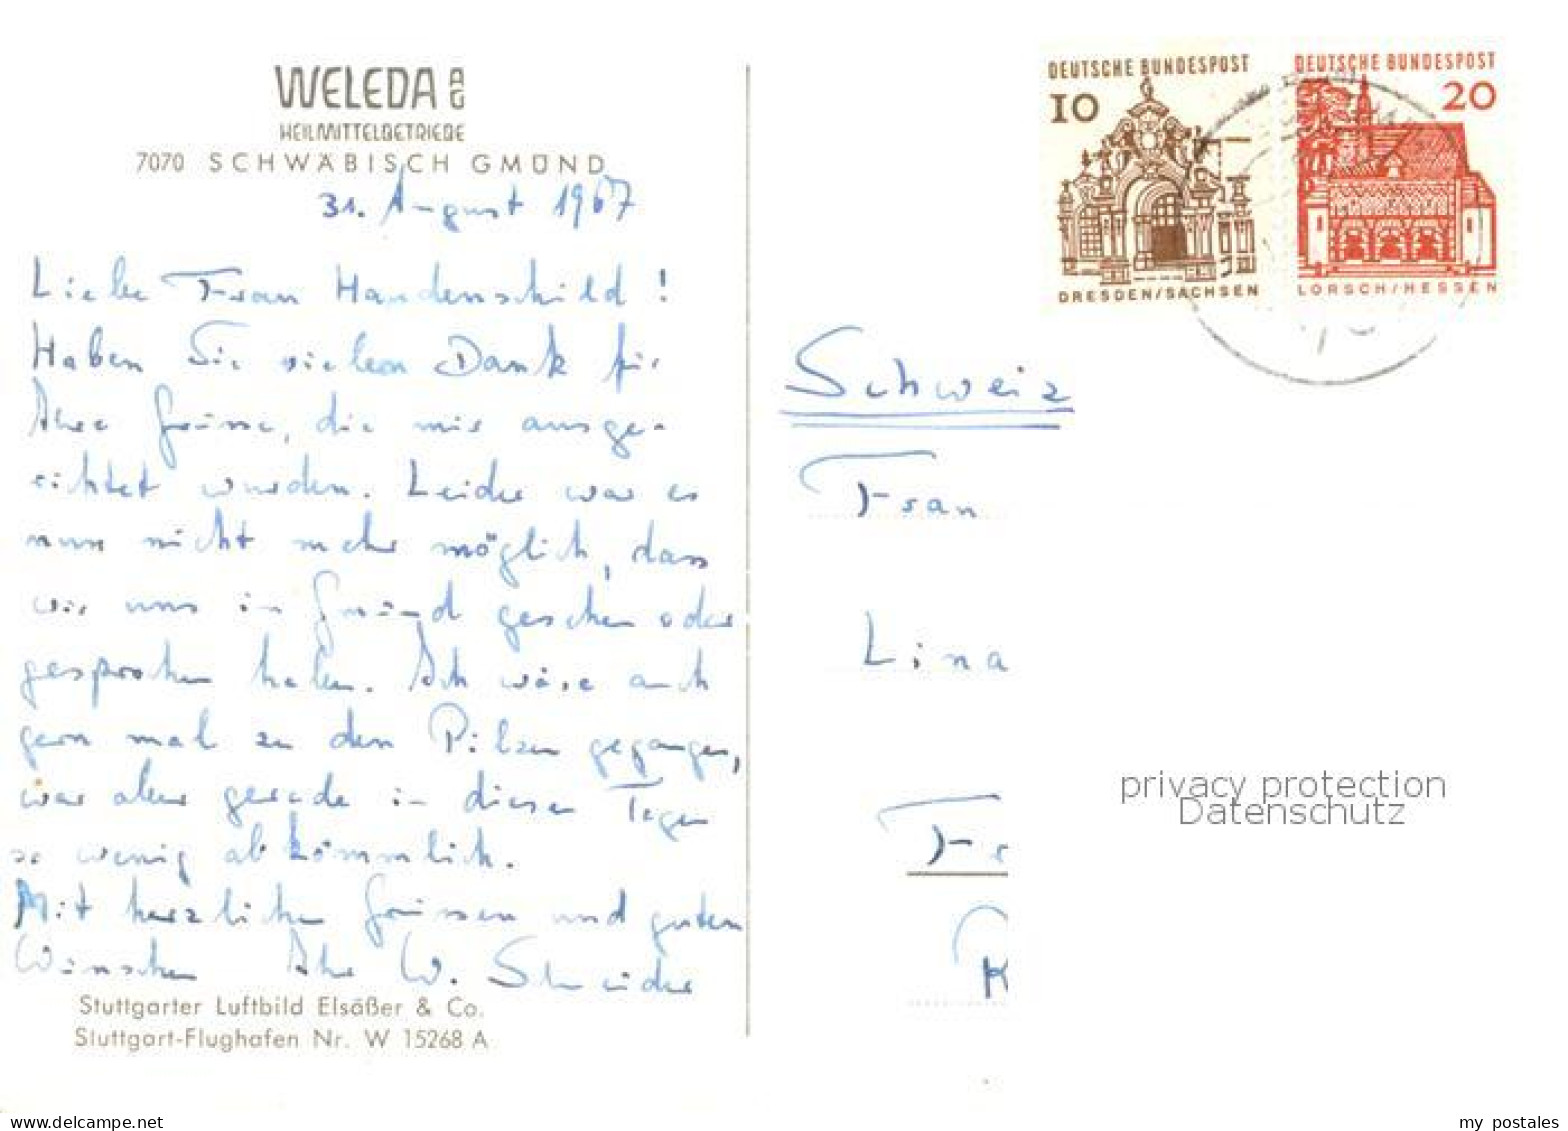 WELEDA AG
HEILMITTELBETRIEBE
7070 SCHWÄBISCH GMÜND
31. August 1967
Liebe Frau Handenschild!
Haben Sie vielen Dank für
Ihre Grüsse, die mir ausge-
richtet wurden. Leider war es
nun nicht mehr möglich, dass
wir uns in Gmünd gesehen oder
gesprochen haben. Ich wäre auch
gern mal zu den Pilzen gegangen,
war aber gerade in diesen Tagen
so wenig abkömmlich.
Mit herzlichen Grüssen und guten
Wünschen Ihr W. Schneider
Stuttgarter Luftbild Elsäßer & Co.
Stuttgart-Flughafen Nr. W 15268 A
DEUTSCHE BUNDESPOST
10
DRESDEN/SACHSEN
DEUTSCHE BUNDESPOST
20
LORSCH/HESSEN
Schweiz
Frau
Lina
Fr
K
privacy protection
Datenschutz
my postales